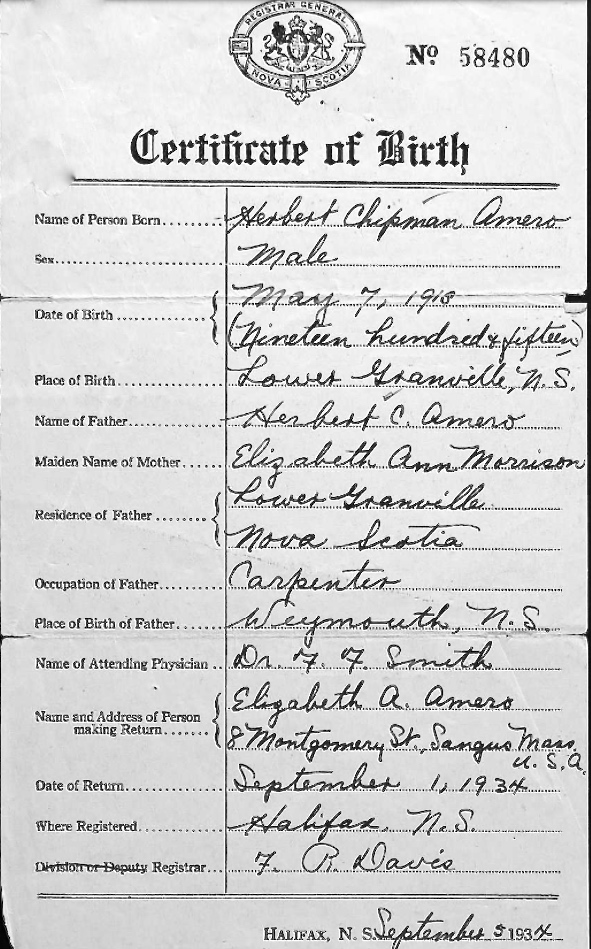 REGISTRAR GENERAL
NOVA SCOTIA
No. 58480
Certificate of Birth
Name of Person Born........ Herbert Chipman Amero
Sex........ Male
Date of Birth ........ May 7, 1915
(Nineteen hundred & fifteen)
Place of Birth........ Lower Granville, N.S.
Name of Father........ Herbert C. Amero
Maiden Name of Mother..... Elizabeth Ann Morrison
Residence of Father ........ Lower Granville
Nova Scotia
Occupation of Father........ Carpenter
Place of Birth of Father....... Weymouth, N.S.
Name of Attending Physician .. Dr. F. F. Smith
Name and Address of Person making Return....... Elizabeth A. Amero
8 Montgomery St., Sangus Mass. U.S.A.
Date of Return........ September 1, 1934
Where Registered........ Halifax, N.S.
Division or Deputy Registrar... F. R. Davis
HALIFAX, N. S. September 5 1934